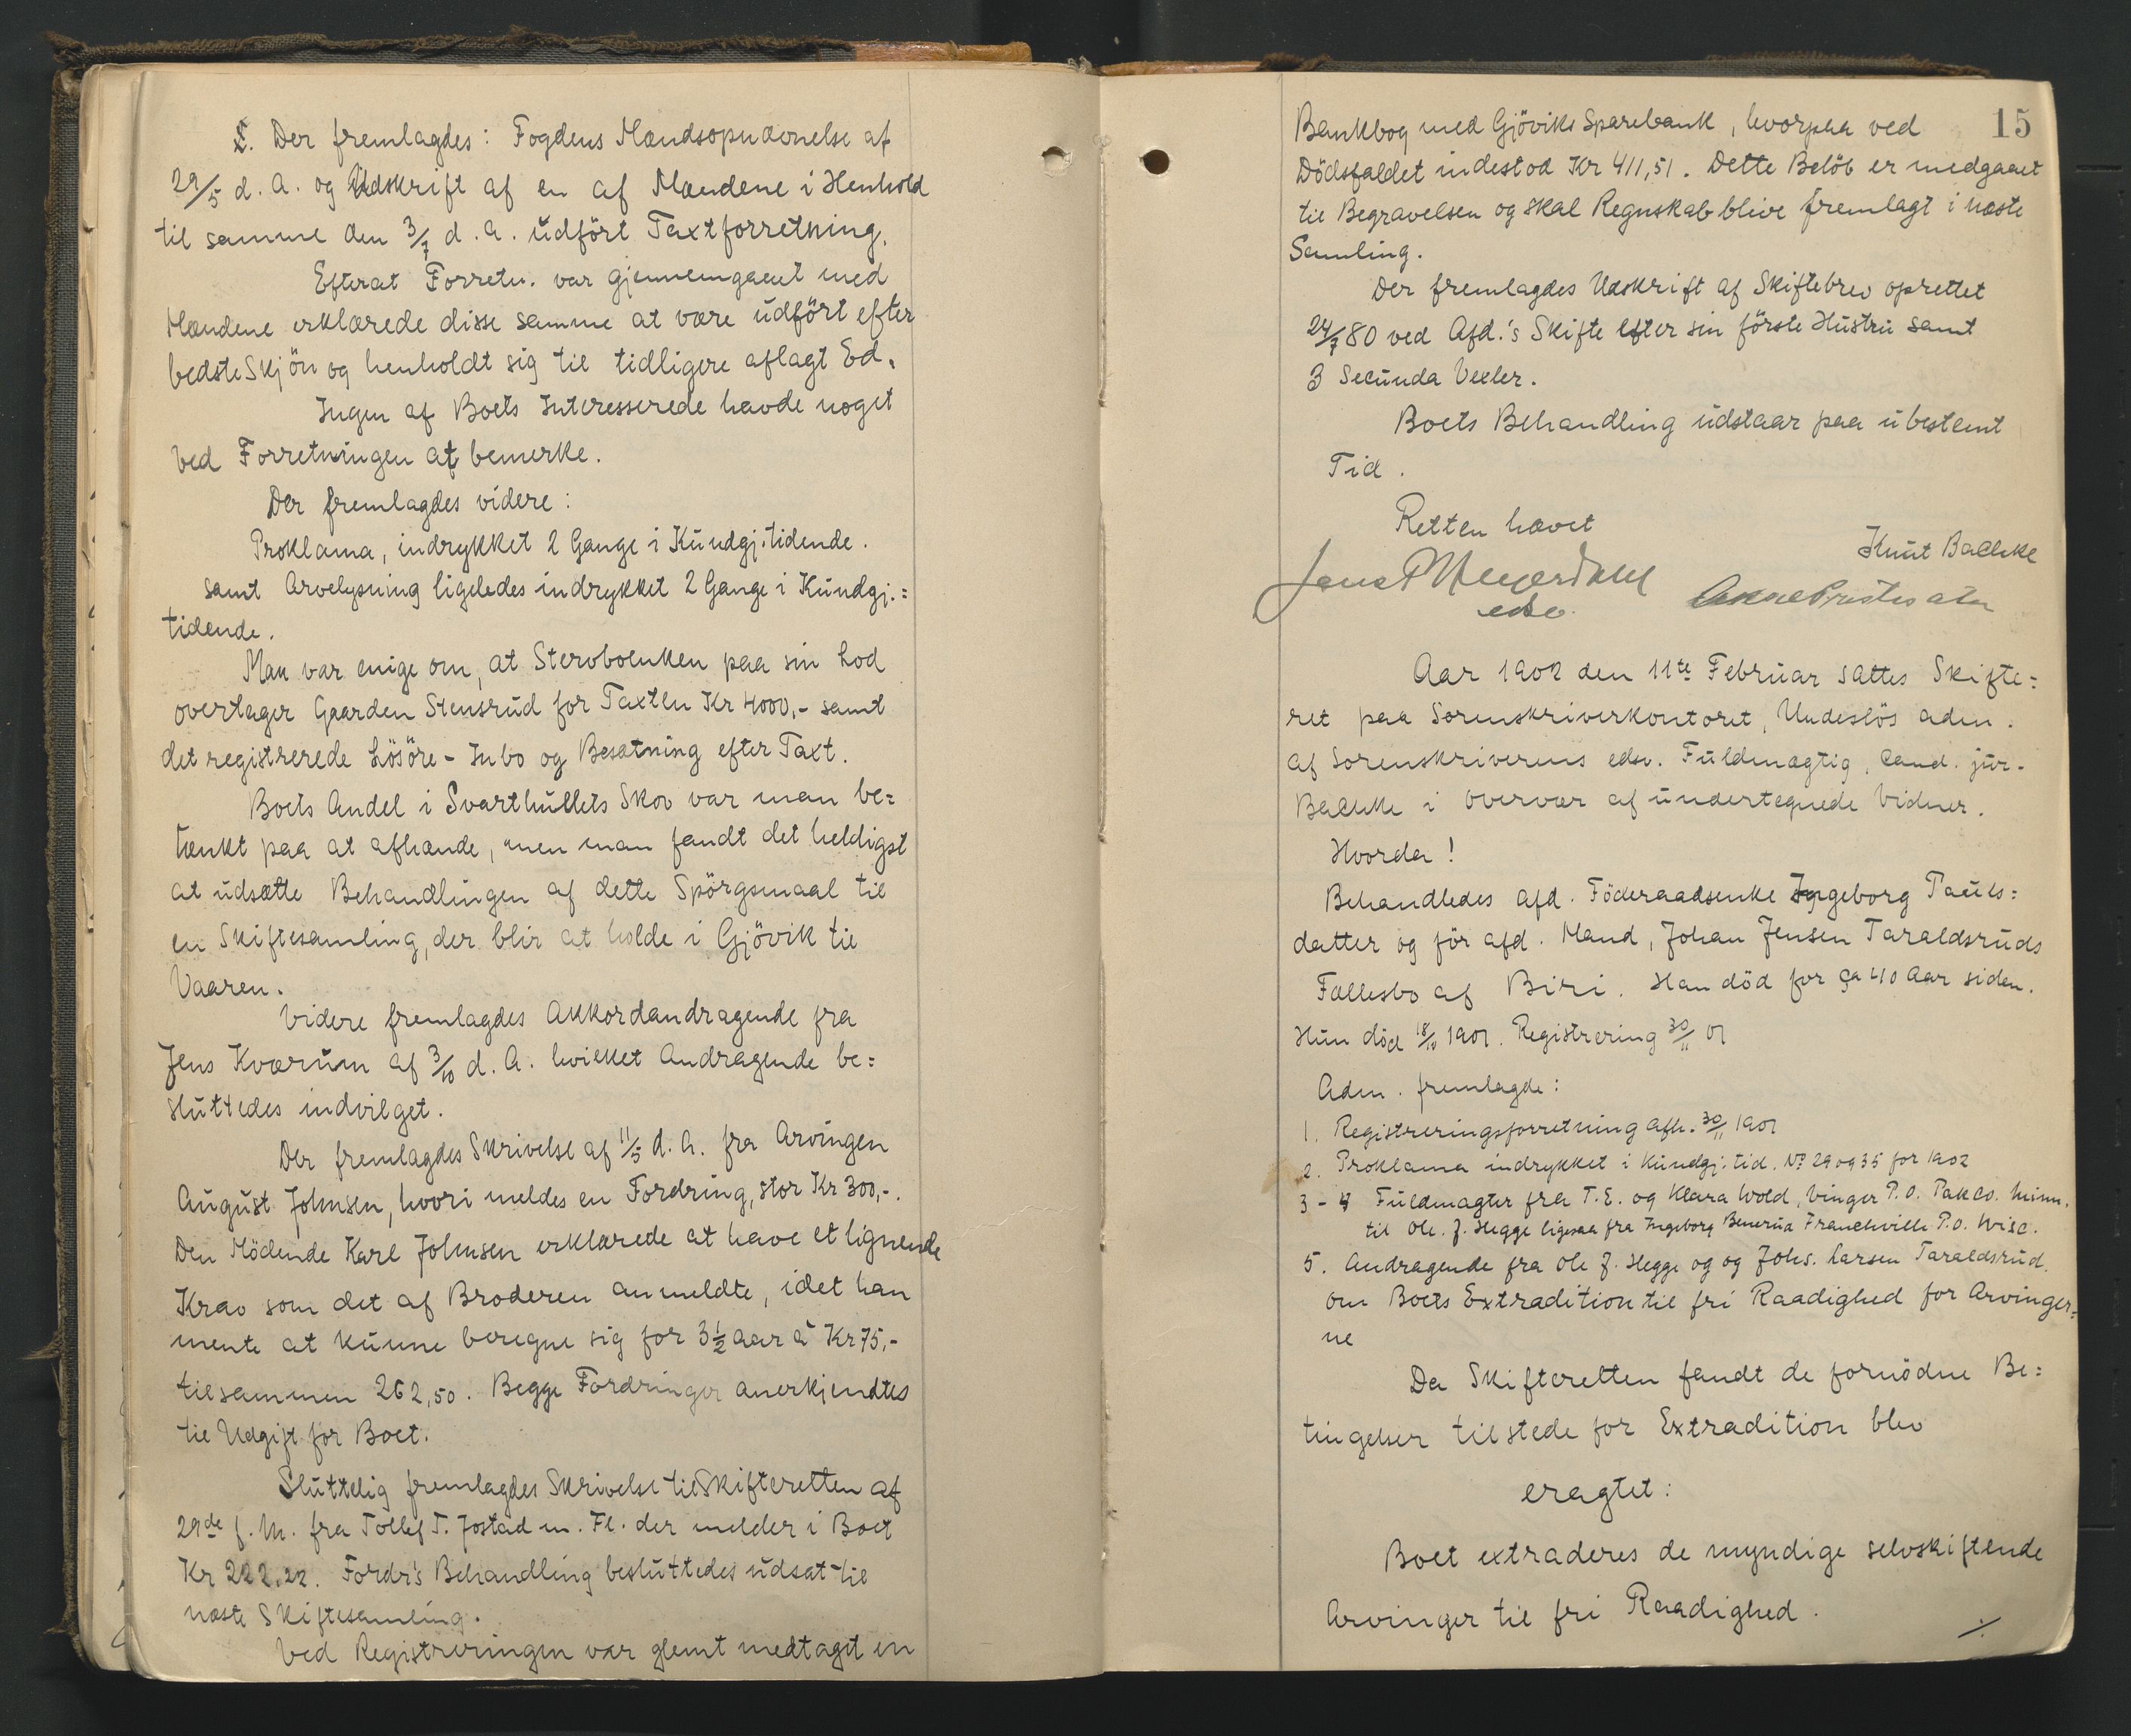 Der fremlagdes: Fogdens Mændsopnævnelse af
29/5 d. A. og Udskrift af en af Mændene i Henhold
til samme den 3/7 d. A. udført Taxtforretning.
Efterat Forretn. var gjennemgaaet med
Mændene erklærede disse samme at være udført efter
bedste Skjön og henholdt sig til tidligere aflagt Ed.
Ingen af Boets Interesserede havde noget
ved Forretningen at bemerke.
Der fremlagdes videre:
Proklama, indrykket 2 Gange i Kundgj.tidende.
samt Arvelysning ligeledes indrykket 2 Gange i Kundgj.=
tidende.
Man var enige om, at Stervboenken paa sin Lod
overtager Gaarden Stensrud for Taxten Kr 4000,- samt
det registrerede Lösöre - Inbo og Besætning efter Taxt.
Boets Andel i Svarthullets Skov var man be=
tænkt paa at afhænde, men man fandt det heldigst
at udsætte Behandlingen af dette Spörgsmaal til
en Skiftesamling, der blir at holde i Gjövik til
Vaaren.
Videre fremlagdes Akkordandragende fra
Jens Kværum af 3/10 d. A. hvilket Andragende be=
sluttedes indvilget.
Der fremlagdes Skrivelse af 11/5 d. A. fra Arvingen
August Johnsen, hvori meldes en Fordring, stor Kr 300,-.
Den Mödende Karl Johnsen erklærede at have et lignende
Krav som det af Broderen anmeldte, idet han
mente at kunne beregne sig for 3½ Aar à Kr 75,-
tilsammen 262,50. Begge Fordringer anerkjendtes
til Udgift for Boet.
Sluttelig fremlagdes Skrivelse til Skifteretten af
29de f. M. fra Tollef T. Jostad m. Fl. der melder i Boet
Kr 222,22. Fordr's Behandling besluttedes udsat til
næste Skiftesamling.
Ved Registreringen var glemt medtaget en
15
Bankbog med Gjöviks Sparebank, hvorpaa ved
Dödsfaldet indestod Kr 411,51. Dette Belöb er medgaaet
til Begravelsen og skal Regnskab blive fremlagt i næste
Samling.
Der fremlagdes Udskrift af Skiftebrev oprettet
24/7 80 ved Afd.'s Skifte efter sin förste Hustru samt
3 Secunda Vexler.
Boets Behandling udstaar paa ubestemt
Tid.
Retten hævet
Knut Balchke
Jens P Meyerdahl
edsv.
Aar 1902 den 11te Februar sattes Skifte=
ret paa Sorenskriverkontoret, Undeslös adm.
af Sorenskriverens edsv. Fuldmægtig, Cand. jur.
Balchke i Overvær af undertegnede Vidner.
Hvorda!
Behandledes afd. Föderaadsenke Ingeborg Pauls=
datter og för afd. Mand, Johan Jensen Taraldsruds
Fællesbo af Biri. Han död for ca 40 Aar siden.
Hun död 18/10 1901. Registrering 30/11 01
Adm. fremlagde:
1. Registreringsforretning afh. 30/11 1901
2. Proklama indrykket i Kundgj. tid. No 29 og 35 for 1902
3 - 4 Fuldmagter fra T. E. og Klara Wold, Vinger P.O. Pak Co. Minn.
til Ole. J. Hegge ligesaa fra Ingeborg Franchville P.O. Wisc.
5. Andragende fra Ole J. Hegge og og Johs. Larsen Taraldsrud.
om Boets Extradition til fri Raadighed for Arvinger=
ne
Da Skifteretten fandt de fornödne Be=
tingelser tilstede for Extradition blev
eragtet:
Boet extraderes de myndige selvskiftende
Arvinger til fri Raadighed.